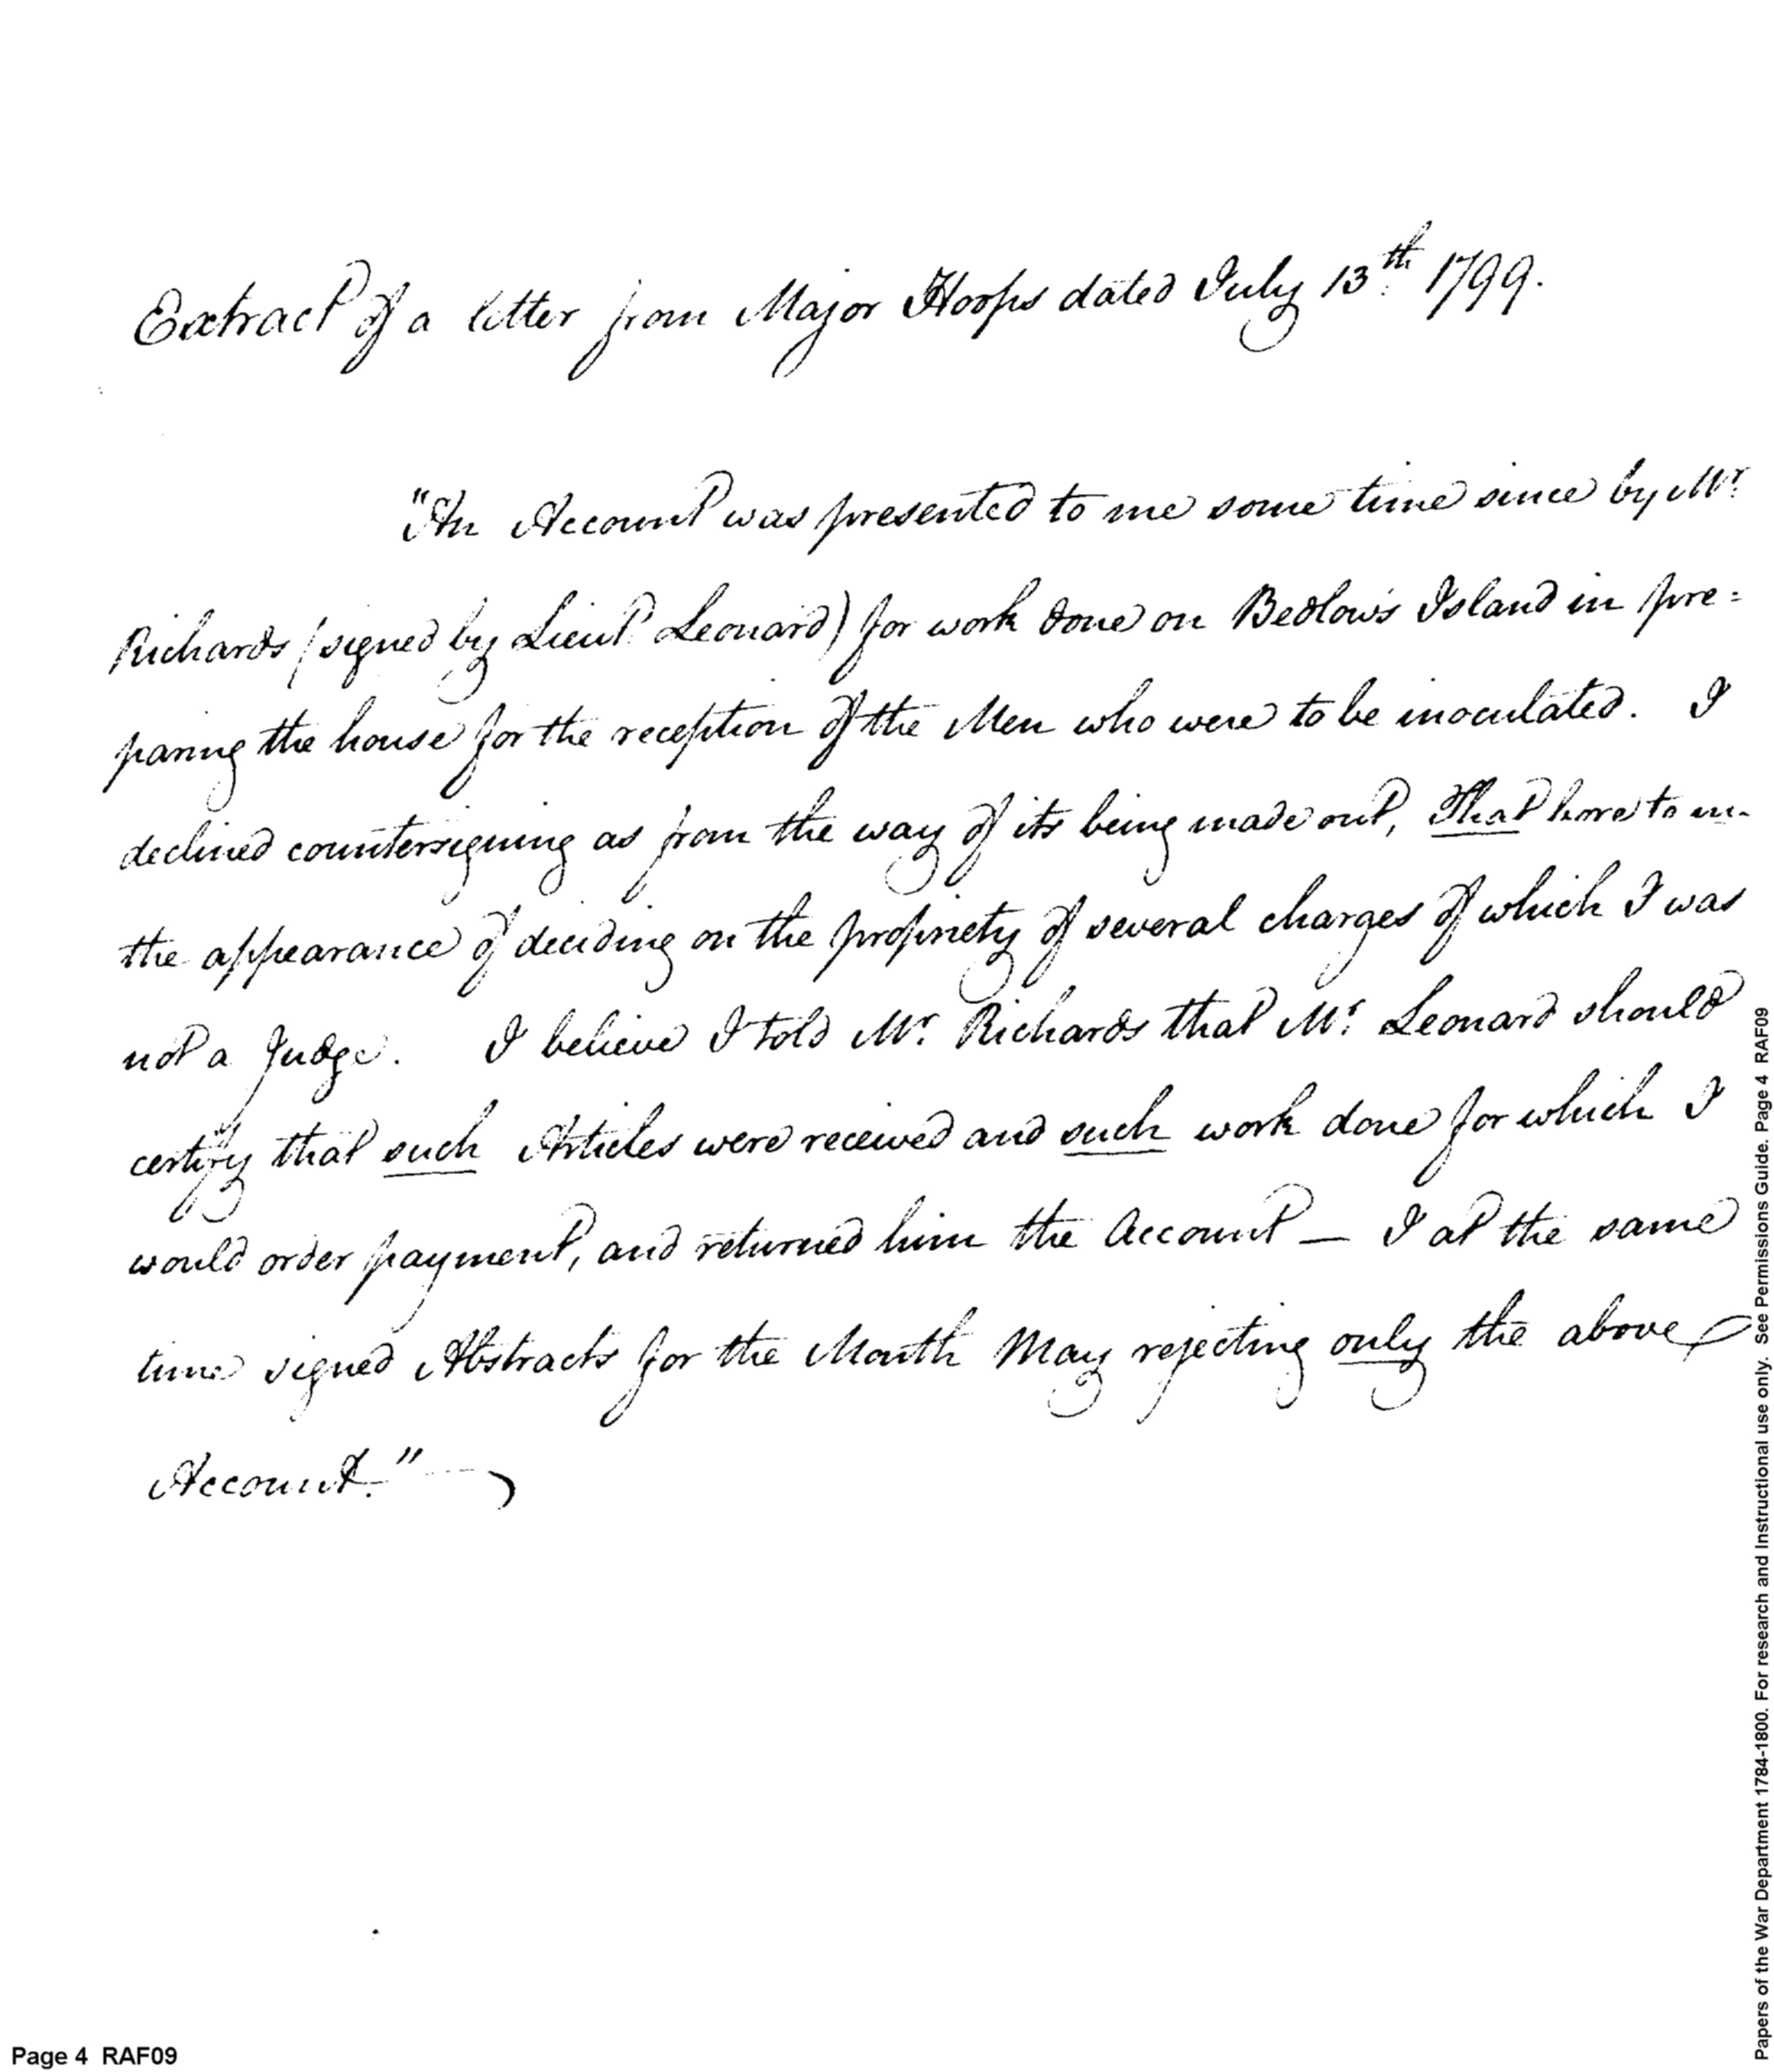 Extract of a letter from Major Hoops dated July 13th 1799.
"An Account was presented to me some time since by Mr
Richards (signed by Lieut. Leonard) for work done on Bedlow's Island in pre=
paring the house for the reception of the Men who were to be inoculated. I
declined countersigning as from the way of its being made out, That bore to me
the appearance of deciding on the propriety of several charges of which I was
not a Judge. I believe I told Mr. Richards that Mr. Leonard should
certify that such Articles were received and such work done for which I
would order payment, and returned him the Account — I at the same
time signed Abstracts for the Month May rejecting only the above
Account."
Page 4 RAF09
Papers of the War Department 1784-1800. For research and Instructional use only. See Permissions Guide. Page 4 RAF09